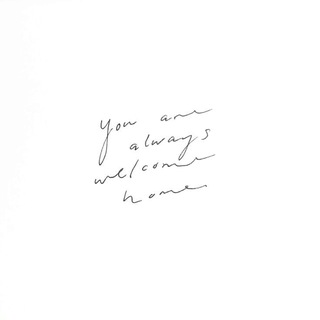 you are
always
welcome
home